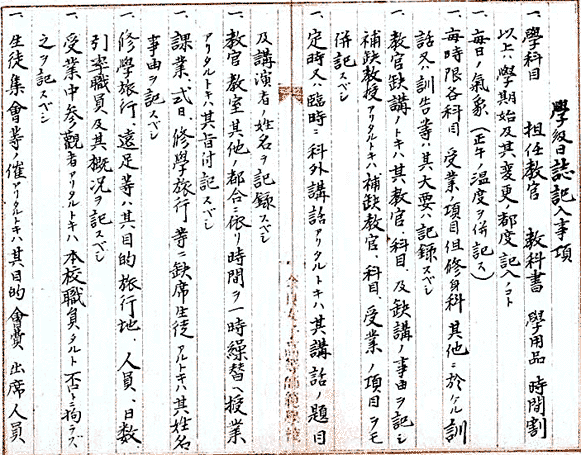 學級日誌記入事項
一、學科目　担任教官　教科書　學用品　時間割
以上ハ學期始及其變更ノ都度記入ノコト
一、毎日ノ氣象（正午ノ温度ヲ併記ス）
一、毎時限各科目　受業ノ項目但修身科其他ニ於ケル訓
話又ハ訓告等ハ其大要ヲ記録スベシ
一、教官缺講ノトキハ其教官、科目、及缺講ノ事由ヲ記シ
補缺教授アリタルトキハ補缺教官、科目、受業ノ項目ヲモ
併記スベシ
一、定時又ハ臨時ニ科外講話アリタルトキハ其講話ノ題目
奈良女子高等師範學校
及講演者ノ姓名ヲ記録スベシ
一、教官、教室其他ノ都合ニ依リ時間ヲ一時繰替ヘ授業
アリタルトキハ其旨付記スベシ
一、課業、式日、修學旅行等ニ缺席生徒アルトキハ其姓名
事由ヲ記スベシ
一、修學旅行、遠足等ハ其目的旅行地、人員、日数、
引率職員及其概況ヲ記スベシ
一、受業中参觀者アリタルトキハ本校職員タルト否トニ拘ラズ
之ヲ記スベシ
一、生徒集會等ノ催アリタルトキハ其目的會費出席人員